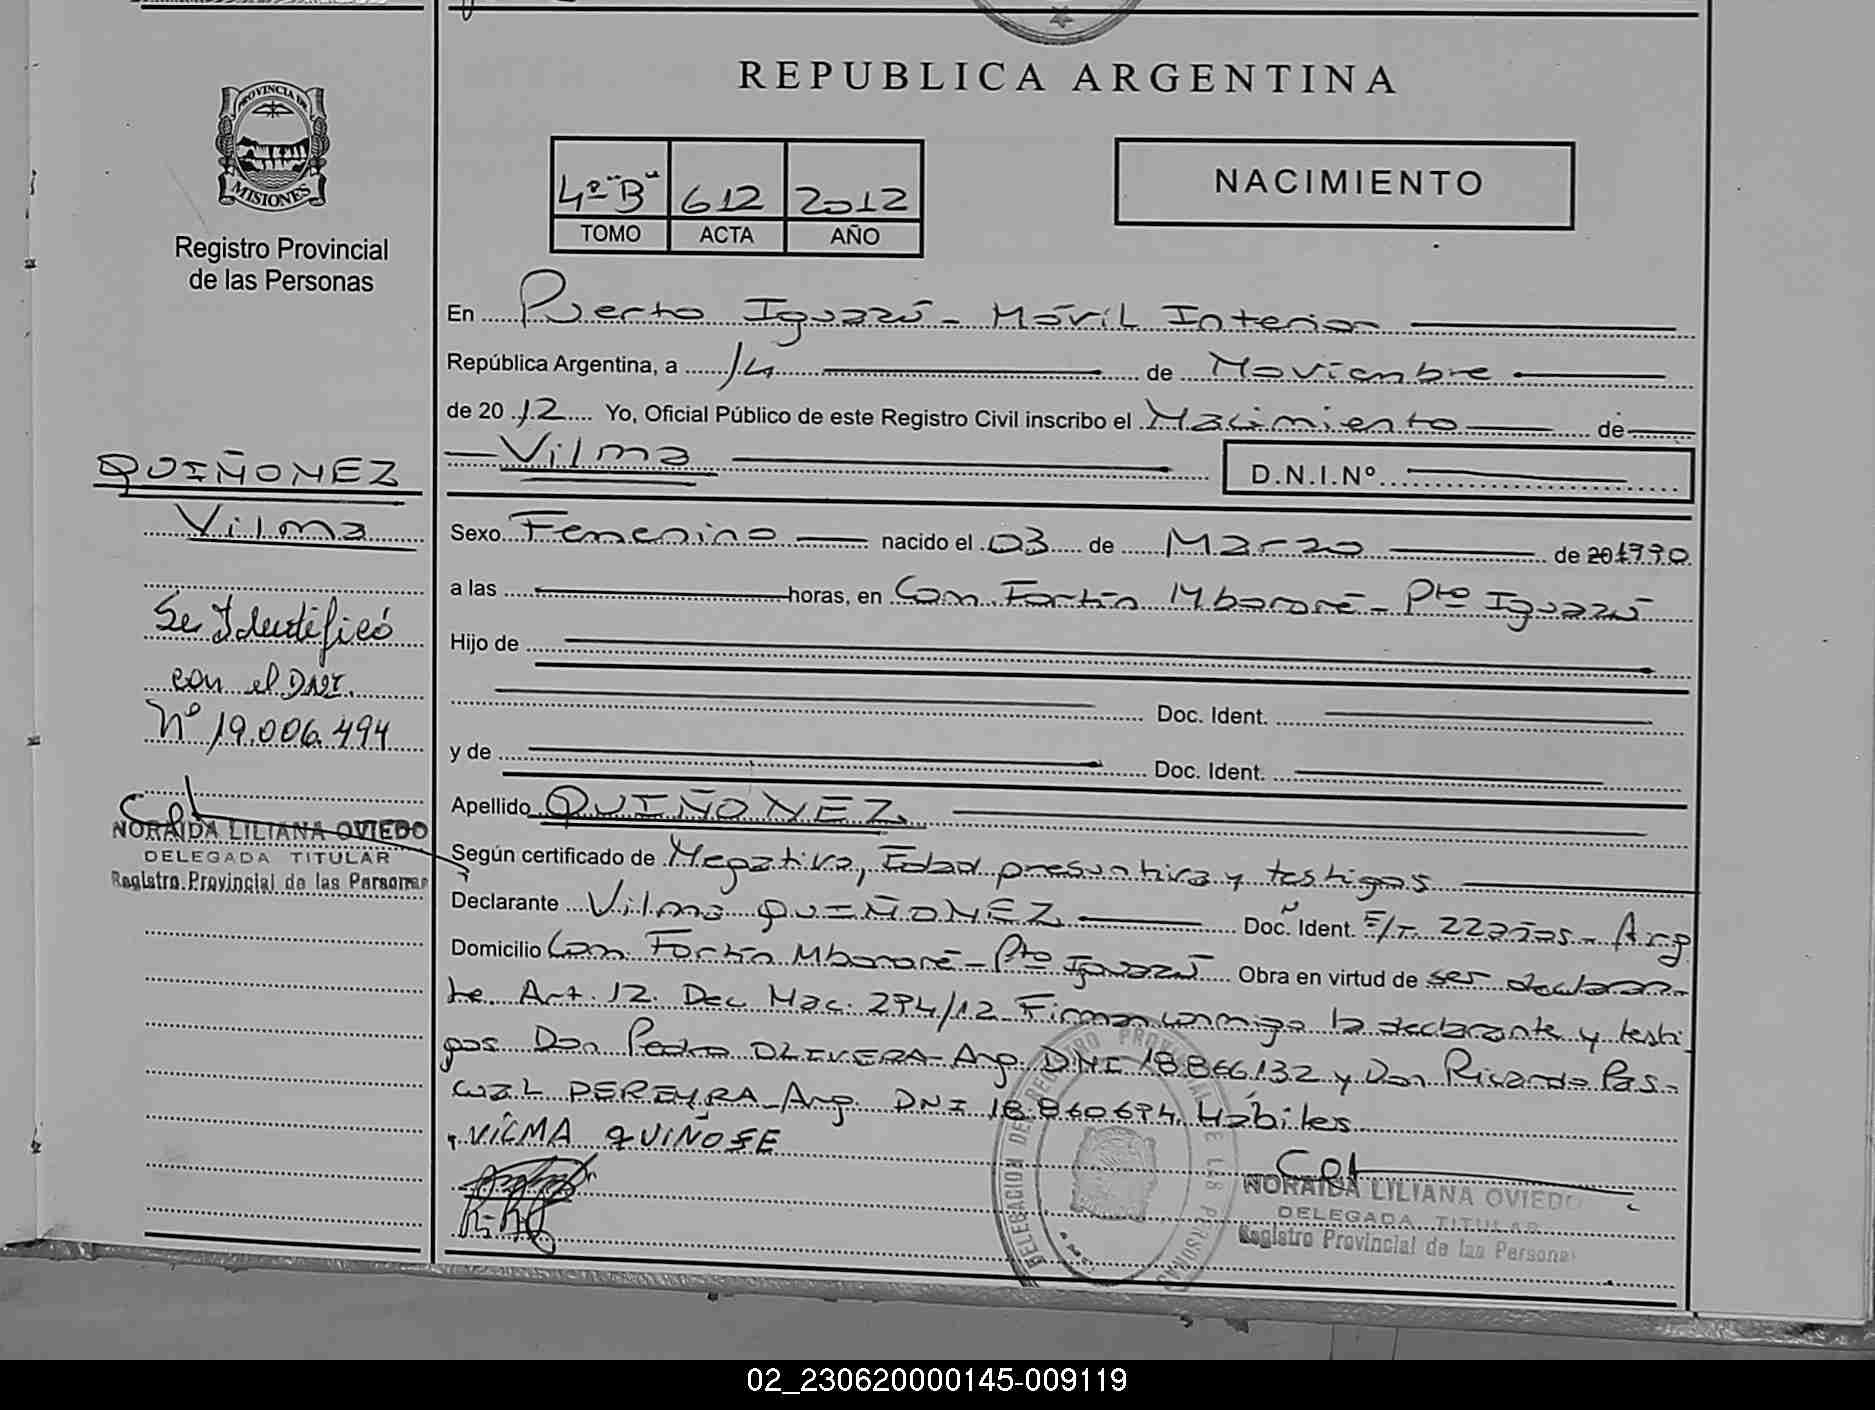 REPUBLICA ARGENTINA
PROVINCIA DE
MISIONES
Registro Provincial
de las Personas
4º "B" 612 2012
TOMO ACTA AÑO
NACIMIENTO
En Puerto Iguazú - Móvil Interior
República Argentina, a 14 de Noviembre
de 2012 Yo, Oficial Público de este Registro Civil inscribo el Nacimiento de
Vilma D.N.I.Nº
QUIÑONEZ
Vilma
Se Identificó
con el DNI.
Nº 19.006.494
NORAIDA LILIANA OVIEDO
DELEGADA TITULAR
Registro Provincial de las Personas
Sexo Femenino nacido el 03 de Marzo de 201990
a las horas, en Com. Fortín Mbororé - Pto Iguazú
Hijo de
Doc. Ident.
y de Doc. Ident.
Apellido QUIÑONEZ
Según certificado de Negativa, Edad presuntiva y testigos
Declarante Vilma QUIÑONEZ Doc. Ident. E/T. 22años - Arg
Domicilio Com. Fortín Mbororé - Pto Iguazú Obra en virtud de ser declaran-
te. Art. 12. Dec. Nac. 294/12 Firman conmigo la declarante y testi-
gos Don Pedro OLIVERA - Arg. DNI 18.866.132 y Don Ricardo Pas-
cual PEREYRA - Arg. DNI 18.860.694. Hábiles
VILMA QUIÑOSE
DELEGACION DEL REGISTRO PROVINCIAL DE LAS PERSONAS
NORAIDA LILIANA OVIEDO
DELEGADA TITULAR
Registro Provincial de las Personas
02_230620000145-009119